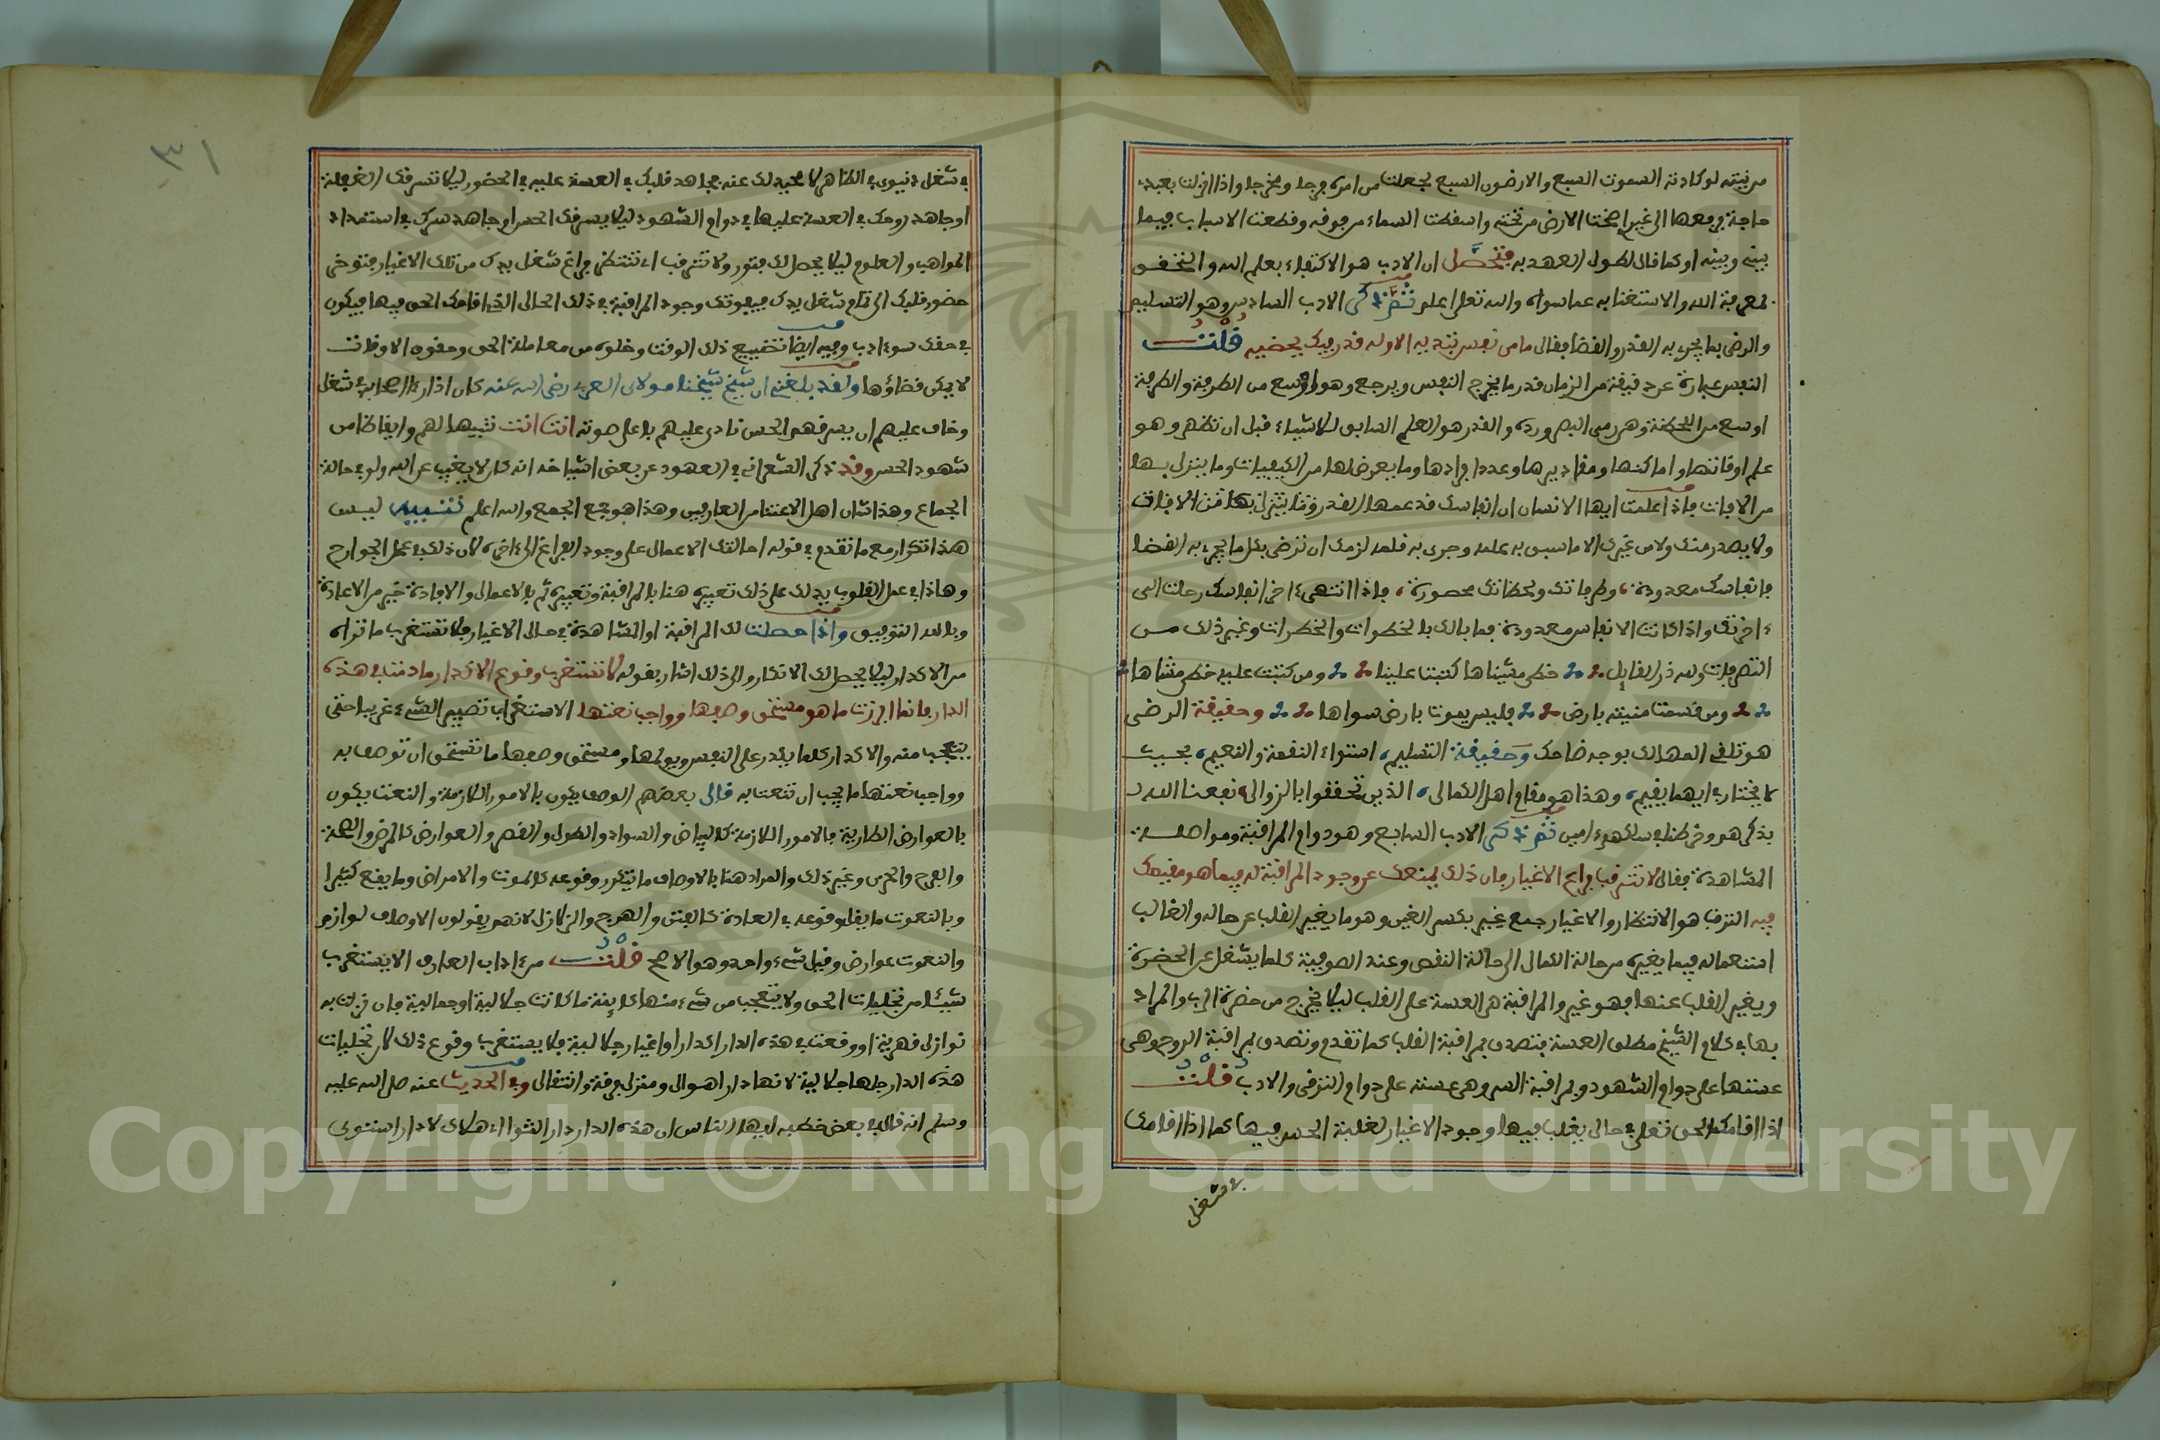 من نيته لو كادته السموت السبع والارضون السبع لجعلت من امره فرجا ومخرجا واذا انزلت بعبدي
حاجة فرفعها الى غيري اضختا الارض من تحته واسقطت السماء من فوقه وقطعت الاسباب فيما
بيني وبينه او كما قال لطول العهد به فتحصل ان الادب هو الاكتفاء بعلم الله والتحقق
بمعرفة الله والاستغنا به عما سواه والله تعلى اعلم ثم ذكر الادب السادس وهو التسليم
والرضى بما يجري به القدر والقضا فقال ما من نفس تبديه الا وله قدر فيك يمضيه قلت
النفس عبارة عن دقيقة من الزمان قدر ما يخرج النفس ويرجع وهو اوسع من الطرفة والطرفة
اوسع من اللحظة وهي رمي البصر ورده والقدر هو العلم السابق للاشياء قبل ان تظهر وهو
علم اوقاتها واماكنها ومقاديرها وعدد افرادها وما يعرض لها من الكيفيات وما ينزل بها
من الافات فاذا علمت ايها الانسان ان انفاسك قد عمها القدر
ولا يصدر منك ولا من غيرك الا ما سبق به علمه وجرى به قلمه لزمك ان ترضى بكل ما يجري به القضا
فانفاسك معدودة وطرفاتك ولحظاتك محصورة فاذا انتهى ءاخر انفاسك رحلت الى
ءاخرتك واذا كانت الانفاس معدودة فما بالك بالخطوات والخطرات وغير ذلك من
التصرفات ولله در القايل خطى مشيناها كتبت علينا ومن كتبت عليه خطى مشاها
ومن قسمت منيته بارض فليس يموت بارض سواها وحقيقة الرضى
هو تلقي المهالك بوجه ضاحك وحقيقة التسليم استواء النقمة والنعيم بحيث
لا يختار في ايهما يقيم وهذا هو مقام اهل الكمال الذين تحققوا بالزوال نفعنا الله
بذكرهم وخرطنا في سلكهم ءامين ثم ذكر الادب السابع وهو دوام المراقبة ومواصلة
المشاهدة فقال لا تترقب فراغ الاغيار فان ذلك يمنعك عن وجود المراقبة له فيما هو مقيمك
فيه الترقب هو الانتظار والاغيار جمع غير بكسر الغين وهو ما يغير القلب عن حاله والغالب
استعماله فيما يغيره من حالة الكمال الى حالة النقص وعند الصوفية كلما يشغل عن الحضرة
ويغير القلب عنها فهو غير والمراقبة هي العسة على القلب ليلا يخرج من حضرة الرب والمراد
بها في كلام الشيخ مطلق العسة فتصدق بمراقبة القلب كما تقدم وتصدق بمراقبة الروح وهي
عستها على دوام الشهود وبمراقبة السر وهي عسته على دوام الترقى والادب قلت
اذا اقامك الحق تعلى في حال يغلب فيها وجود الاغيار لغلبة الحس فيها كما اذا اقامك
في شغل
٣١
في شغل دنيوي في الظاهر لا محيد لك عنه فجاهد قلبك في العسة عليه في الحضور ليلا تسرقك الغفلة
او جاهد روحك في العسة عليها في دوام الشهود ليلا يسرقك الحس او جاهد سرك في استمداد
المواهب والعلوم ليلا يحصل لك فتور ولا تترقب اي تنتظر فراغ شغل يدك من تلك الاغيار فتوخر
حضور قلبك الى تمام شغل يدك فيفوتك وجود المراقبة في ذلك الحال الذي اقامك الحق فيها فيكون
في حقك سوء ادب وفيه ايضا تضييع ذلك الوقت وخلوه من معاملة الحق وحقوق الاوقات
لا يمكن قضاؤها ولقد بلغني ان شيخ شيخنا مولاي العربي رضي الله عنه كان اذا رءا اصحابه في شغل
وخاف عليهم ان يسرقهم الحس نادى عليهم باعلى صوته انت انت تنبيها لهم وايقاظا من
شهود الحس وقد ذكر الشعراني في العهود عن بعض اشياخه انه كان لا يغيب عن الله ولو في حالة
الجماع وهذا شان اهل الاعتنا من العارفين وهذا هو جمع الجمع والله اعلم تنبيه ليس
هذا تكرار مع ما تقدم في قوله احالتك الاعمال على وجود الفراغ الى ءاخره لان ذلك في عمل الجوارح
وهاذا في عمل القلوب يدلك على ذلك تعبيره هنا بالمراقبة وتعبيره ثم بالاعمال والافادة خير من الاعادة
وبالله التوفيق واذا حصلت لك المراقبة او المشاهدة في حال الاغيار فلا تستغرب ما تراه
من الاكدار ليلا يحصل لك الانكار والى ذلك اشار بقوله لا تستغرب وقوع الاكدار ما دمت في هذه
الدار فانها ما ابرزت الا ما هو مستحق وصفها وواجب نعتها الاستغراب تصيير الشيء غريبا حتى
يتعجب منه والاكدار كلما يكدر على النفس ويولمها ومستحق وصفها ما تستحق ان توصف به
وواجب نعتها ما يجب ان تنعت به قال بعضهم الوصف يكون بالامور اللازمة والنعت يكون
بالعوارض الطارية فالامور اللازمة كالبياض والسواد والطول والقصر والعوارض كالمرض والصحة
والفرح والحزن وغير ذلك والمراد هنا بالاوصاف ما تيكرر وقوعه كالموت والامراض وما يقع كثيرا
وبالنعوت ما يقل وقوعه في العادة كالفتن والهرج والزلازل لانهم يقولون الاوصاف لوازم
والنعوت عوارض وقيل شيء واحد وهو الاصح قلت من ءاداب العارف الا يستغرب
شيئا من تجليات الحق ولا يتعجب من شيء منها كاينة ما كانت جلالية او جمالية فان نزلت به
نوازل قهرية او وقعت في هذه الدار اكدار او اغيار جلالية فلا يستغرب وقوع ذلك لان تجليات
هذه الدار جلها جلالية لانها دار اهوال ومنزل فرقة وانتقال وفي الحديث عنه صلى الله عليه
وسلم انه قال في بعض خطبه ايها الناس ان هذه الدار دار التواء لا دار استوى
Copyright © King Saud University